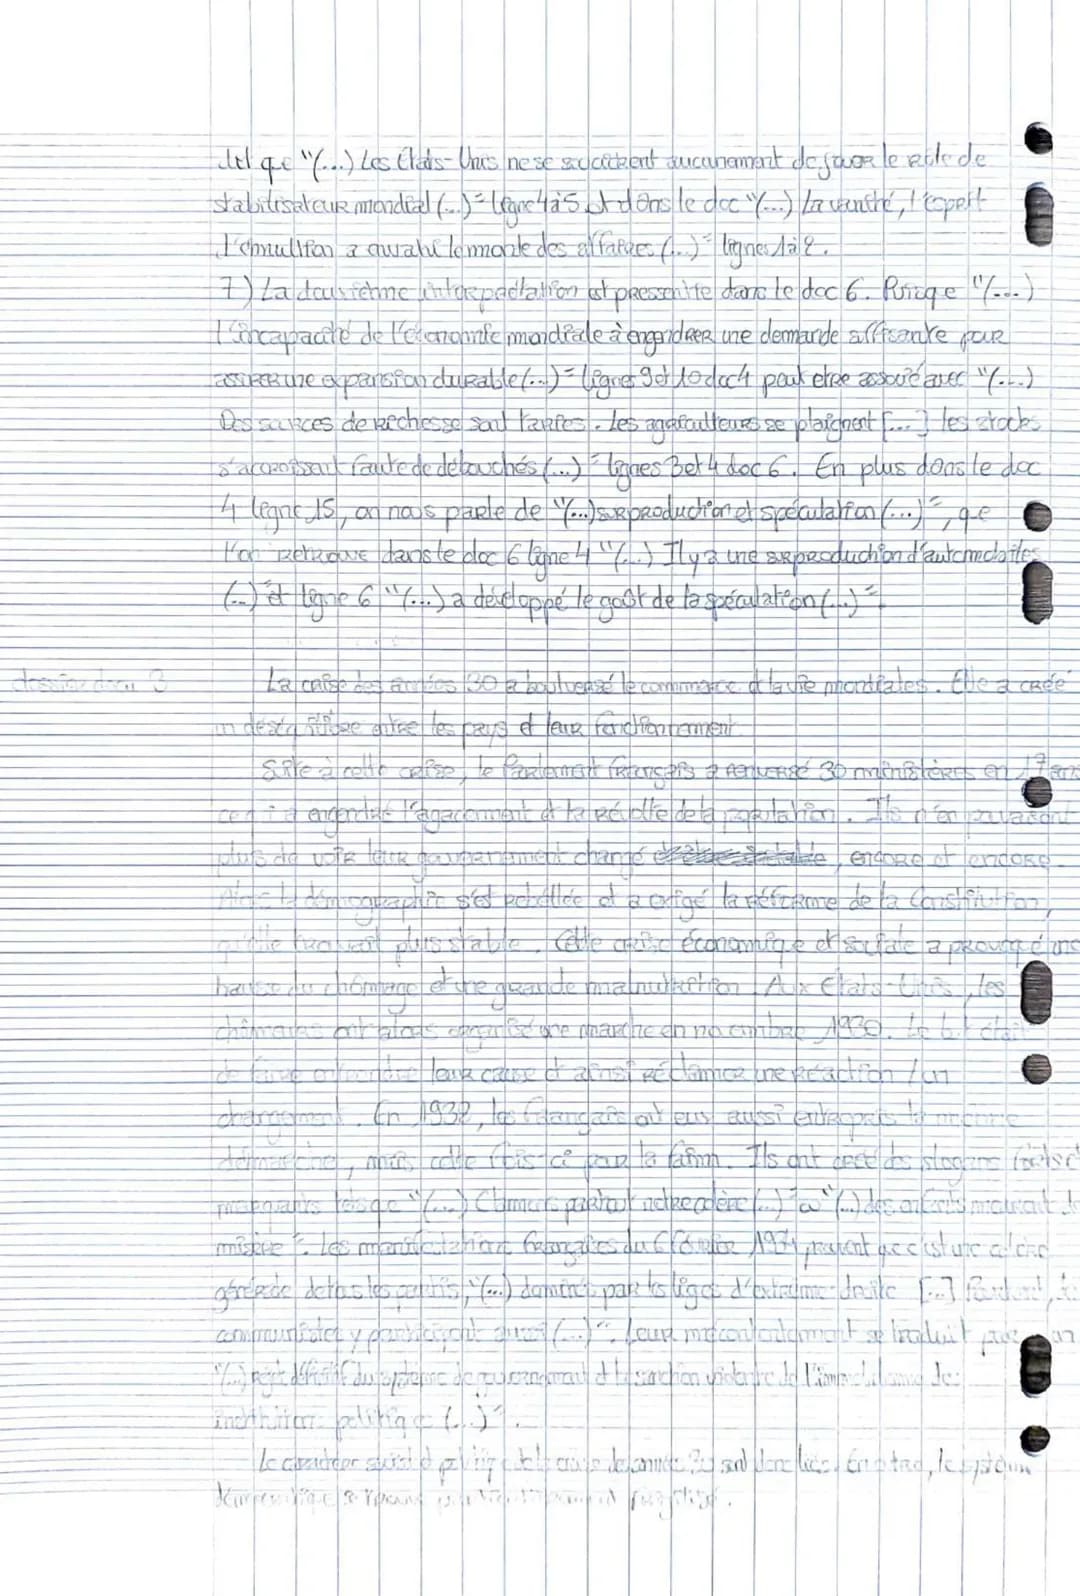 tel que "(...) Les États-Unis ne se soucièrent aucunement de jouer le rôle de
stabilisateur mondial (...)" ligne 4 à 5 et dans le doc "(...) La vanité, l'esprit
d'émulation a envahi le monde des affaires (...)" lignes 1 à 2.
7) La deuxième interprétation est pressentie dans le doc 6. Puisque "(...)
l'incapacité de l'économie mondiale à engendrer une demande suffisante pour
assurer une expansion durable (...)" lignes 9 et 10 doc 4 peut etre associé avec "(...)
Des sources de richesse sont taries. Les agriculteurs se plaignent [...] les stocks
s'accroissent faute de débouchés (...)" lignes 3 et 4 doc 6. En plus dans le doc
4 ligne 15, on nous parle de "(...) surproduction et spéculation (...)", que
l'on retrouve dans le doc 6 ligne 4 "(...) Il y a une surproduction d'automobiles
(...)" et ligne 6 "(...) a développé le goût de la spéculation (...)".
dossier docu 3
La crise des années 30 a bouleversé le commerce et la vie mondiales. Elle a créé
un déséquilibre entre les pays et leur fonctionnement.
Suite à cette crise, le Parlement français a renversé 30 ministères en ans
ce qui a engendré l'agacement et la révolte de la population. Ils n'en pouvaient
plus de voir leur gouvernement changé, encore et encore.
Ainsi la démographie s'est rebellée et a exigé la réforme de la Constitution,
plus stable. Cette crise économique et sociale a provoqué une
hausse du chômage et une grande malnutrition. Aux États-Unis, les
chômeurs ont alors organisé une marche en novembre 1930. Le but était
de faire entendre leur cause et ainsi réclamer une réaction / un
changement. En 1932, les français ont eus aussi entrepris la même
démarche, mais cette fois-ci pour la faim. Ils ont créé des slogans
marquants "(...) Clamons partout notre colère (...)" ou "(...) des enfants mourant de
misère". Les manifestations françaises du 6 février 1934 prouvent que c'est une colère
générale de tous les partis, "(...) dominés par les ligues d'extrême-droite [...] Pourtant, les
communistes y participent aussi (...)". Leur mécontentement se traduit par un
"(...) rejet définitif du système de gouvernement et la sanction violente de l'immobilisme des
institutions politiques (...)".
Le caractère social et politique de la crise des années 30 sont donc liés. En outre, le système
démocratique se fragilisé.